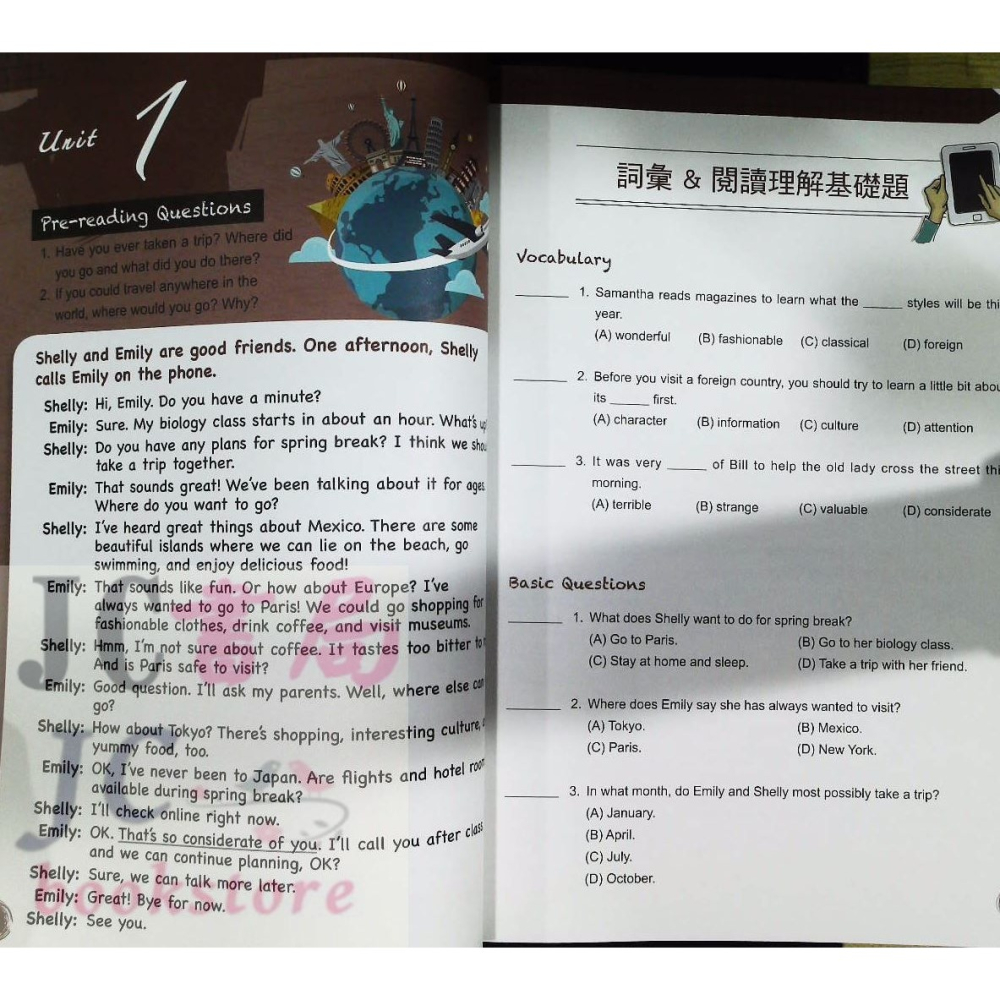 Unit 1
Pre-reading Questions
1. Have you ever taken a trip? Where did
you go and what did you do there?
2. If you could travel anywhere in the
world, where would you go? Why?
Shelly and Emily are good friends. One afternoon, Shelly
calls Emily on the phone.
Shelly: Hi, Emily. Do you have a minute?
Emily: Sure. My biology class starts in about an hour. What's
Shelly: Do you have any plans for spring break? I think we
take a trip together.
Emily: That sounds great! We've been talking about it for ages
Where do you want to go?
Shelly: I've heard great things about Mexico. There are some
beautiful islands where we can lie on the beach, go
swimming, and enjoy delicious food!
Emily: That sounds like fun. Or how about Europe? I've
always wanted to go to Paris! We could go shopping for
fashionable clothes, drink coffee, and visit museums.
Shelly: Hmm, I'm not sure about coffee. It tastes too bitter to
And is Paris safe to visit?
Emily: Good question. I'll ask my parents. Well, where else can
go?
Shelly: How about Tokyo? There's shopping, interesting culture,
yummy food, too.
Emily: OK, I've never been to Japan. Are flights and hotel
available during spring break?
Shelly: I'll check online right now.
Emily: OK. That's so considerate of you. I'll call you after class
and we can continue planning, OK?
Shelly: Sure, we can talk more later.
Emily: Great! Bye for now.
Shelly: See you.
JC書局
JC
bookstore
詞彙 & 閱讀理解基礎題
Vocabulary
_____ 1. Samantha reads magazines to learn what the _____ styles will be
year.
(A) wonderful (B) fashionable (C) classical (D) foreign
_____ 2. Before you visit a foreign country, you should try to learn a little bit
its _____ first.
(A) character (B) information (C) culture (D) attention
_____ 3. It was very _____ of Bill to help the old lady cross the street
morning.
(A) terrible (B) strange (C) valuable (D) considerate
Basic Questions
_____ 1. What does Shelly want to do for spring break?
(A) Go to Paris. (B) Go to her biology class.
(C) Stay at home and sleep. (D) Take a trip with her friend.
_____ 2. Where does Emily say she has always wanted to visit?
(A) Tokyo. (B) Mexico.
(C) Paris. (D) New York.
_____ 3. In what month, do Emily and Shelly most possibly take a trip?
(A) January.
(B) April.
(C) July.
(D) October.